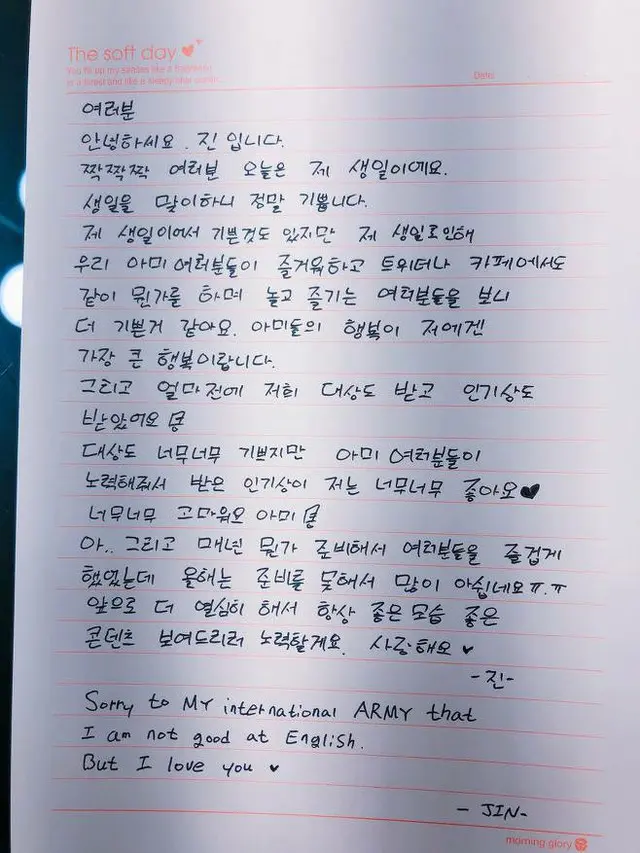 The soft day
Date:
여러분
안녕하세요. 진 입니다.
짝짝짝 여러분 오늘은 제 생일이에요.
생일을 맞이하니 정말 기쁩니다.
제 생일이여서 기쁜것도 있지만 제 생일로인해
우리 아미여러분들이 즐거워하고 트위터나 카페에서도
같이 뭔가를 하며 놀고 즐기는 여러분들을 보니
더 기쁜거 같아요. 아미들의 행복이 저에겐
가장 큰 행복이랍니다.
그리고 얼마전에 저희 대상도 받고 인기상도
받았어요
대상도 너무너무 기쁘지만 아미 여러분들이
노력해줘서 받은 인기상이 저는 너무너무 좋아요♥
너무너무 고마워요 아미
아.. 그리고 매년 뭔가 준비해서 여러분들을 즐겁게
했었는데 올해는 준비를 못해서 많이 아쉽네요ㅠ.ㅠ
앞으로 더 열심히 해서 항상 좋은모습 좋은
콘텐츠 보여드리려 노력할게요. 사랑해요♥
-진-
Sorry to My international ARMY that
I am not good at English.
But I love you ♥
- JIN-
morning glory